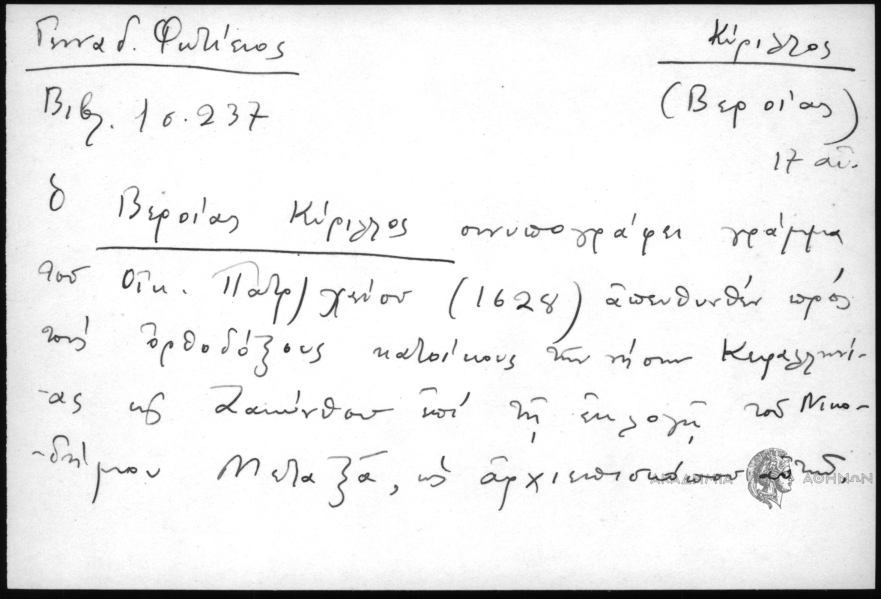 Γενναδ. Φωτίειος
Κύριλλος
Βιβλ. 1 σ. 237
(Βεροίας)
17 αἰ.
ὁ Βεροίας Κύριλλος συνυπογράφει γράμμα
τοῦ Οἰκ. Πατρ)χείου (1628) ἀπευθυνθέν πρός
τούς ὀρθοδόξους κατοίκους τῶν νήσων Κεφαλληνί-
-ας καὶ Ζακύνθου ἐπί τῇ ἐκλογῇ τοῦ Νικο-
-δήμου Μεταξᾶ, ὡς ἀρχιεπισκόπου αὐτῶν.
ΑΚΑΔΗΜΙΑ ΑΘΗΝΩΝ